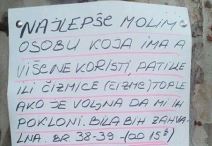 NAJLEPŠE MOLIM
OSOBU KOJA IMA A
VIŠE NE KORISTI, PATIKE
ILI ČIZMICE (ČIZME) TOPLE
AKO JE VOLJNA DA MI IH
POKLONI. BILA BIH ZAHVA-
LNA. BR 38-39 - (DO 15€)